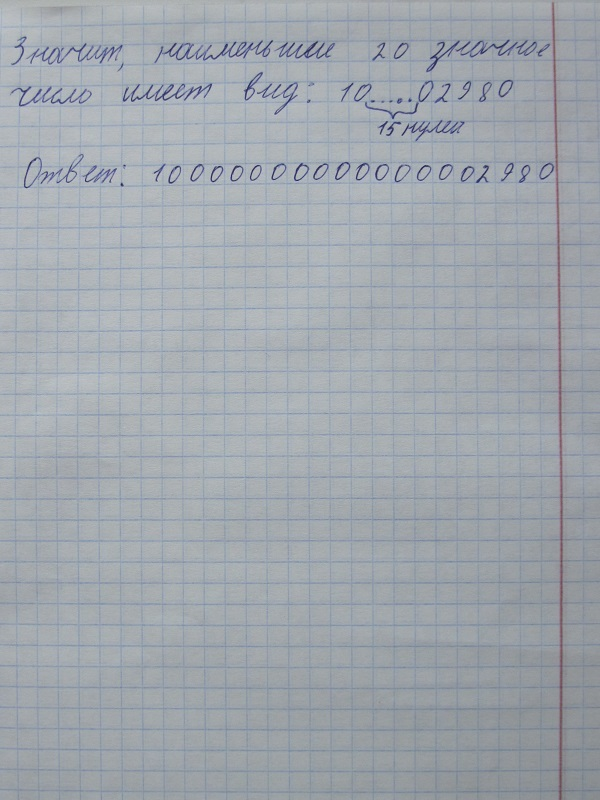 Значит, наименьшее 20 значное
число имеет вид: 10.....02980
15 нулей
Ответ: 10000000000000002980